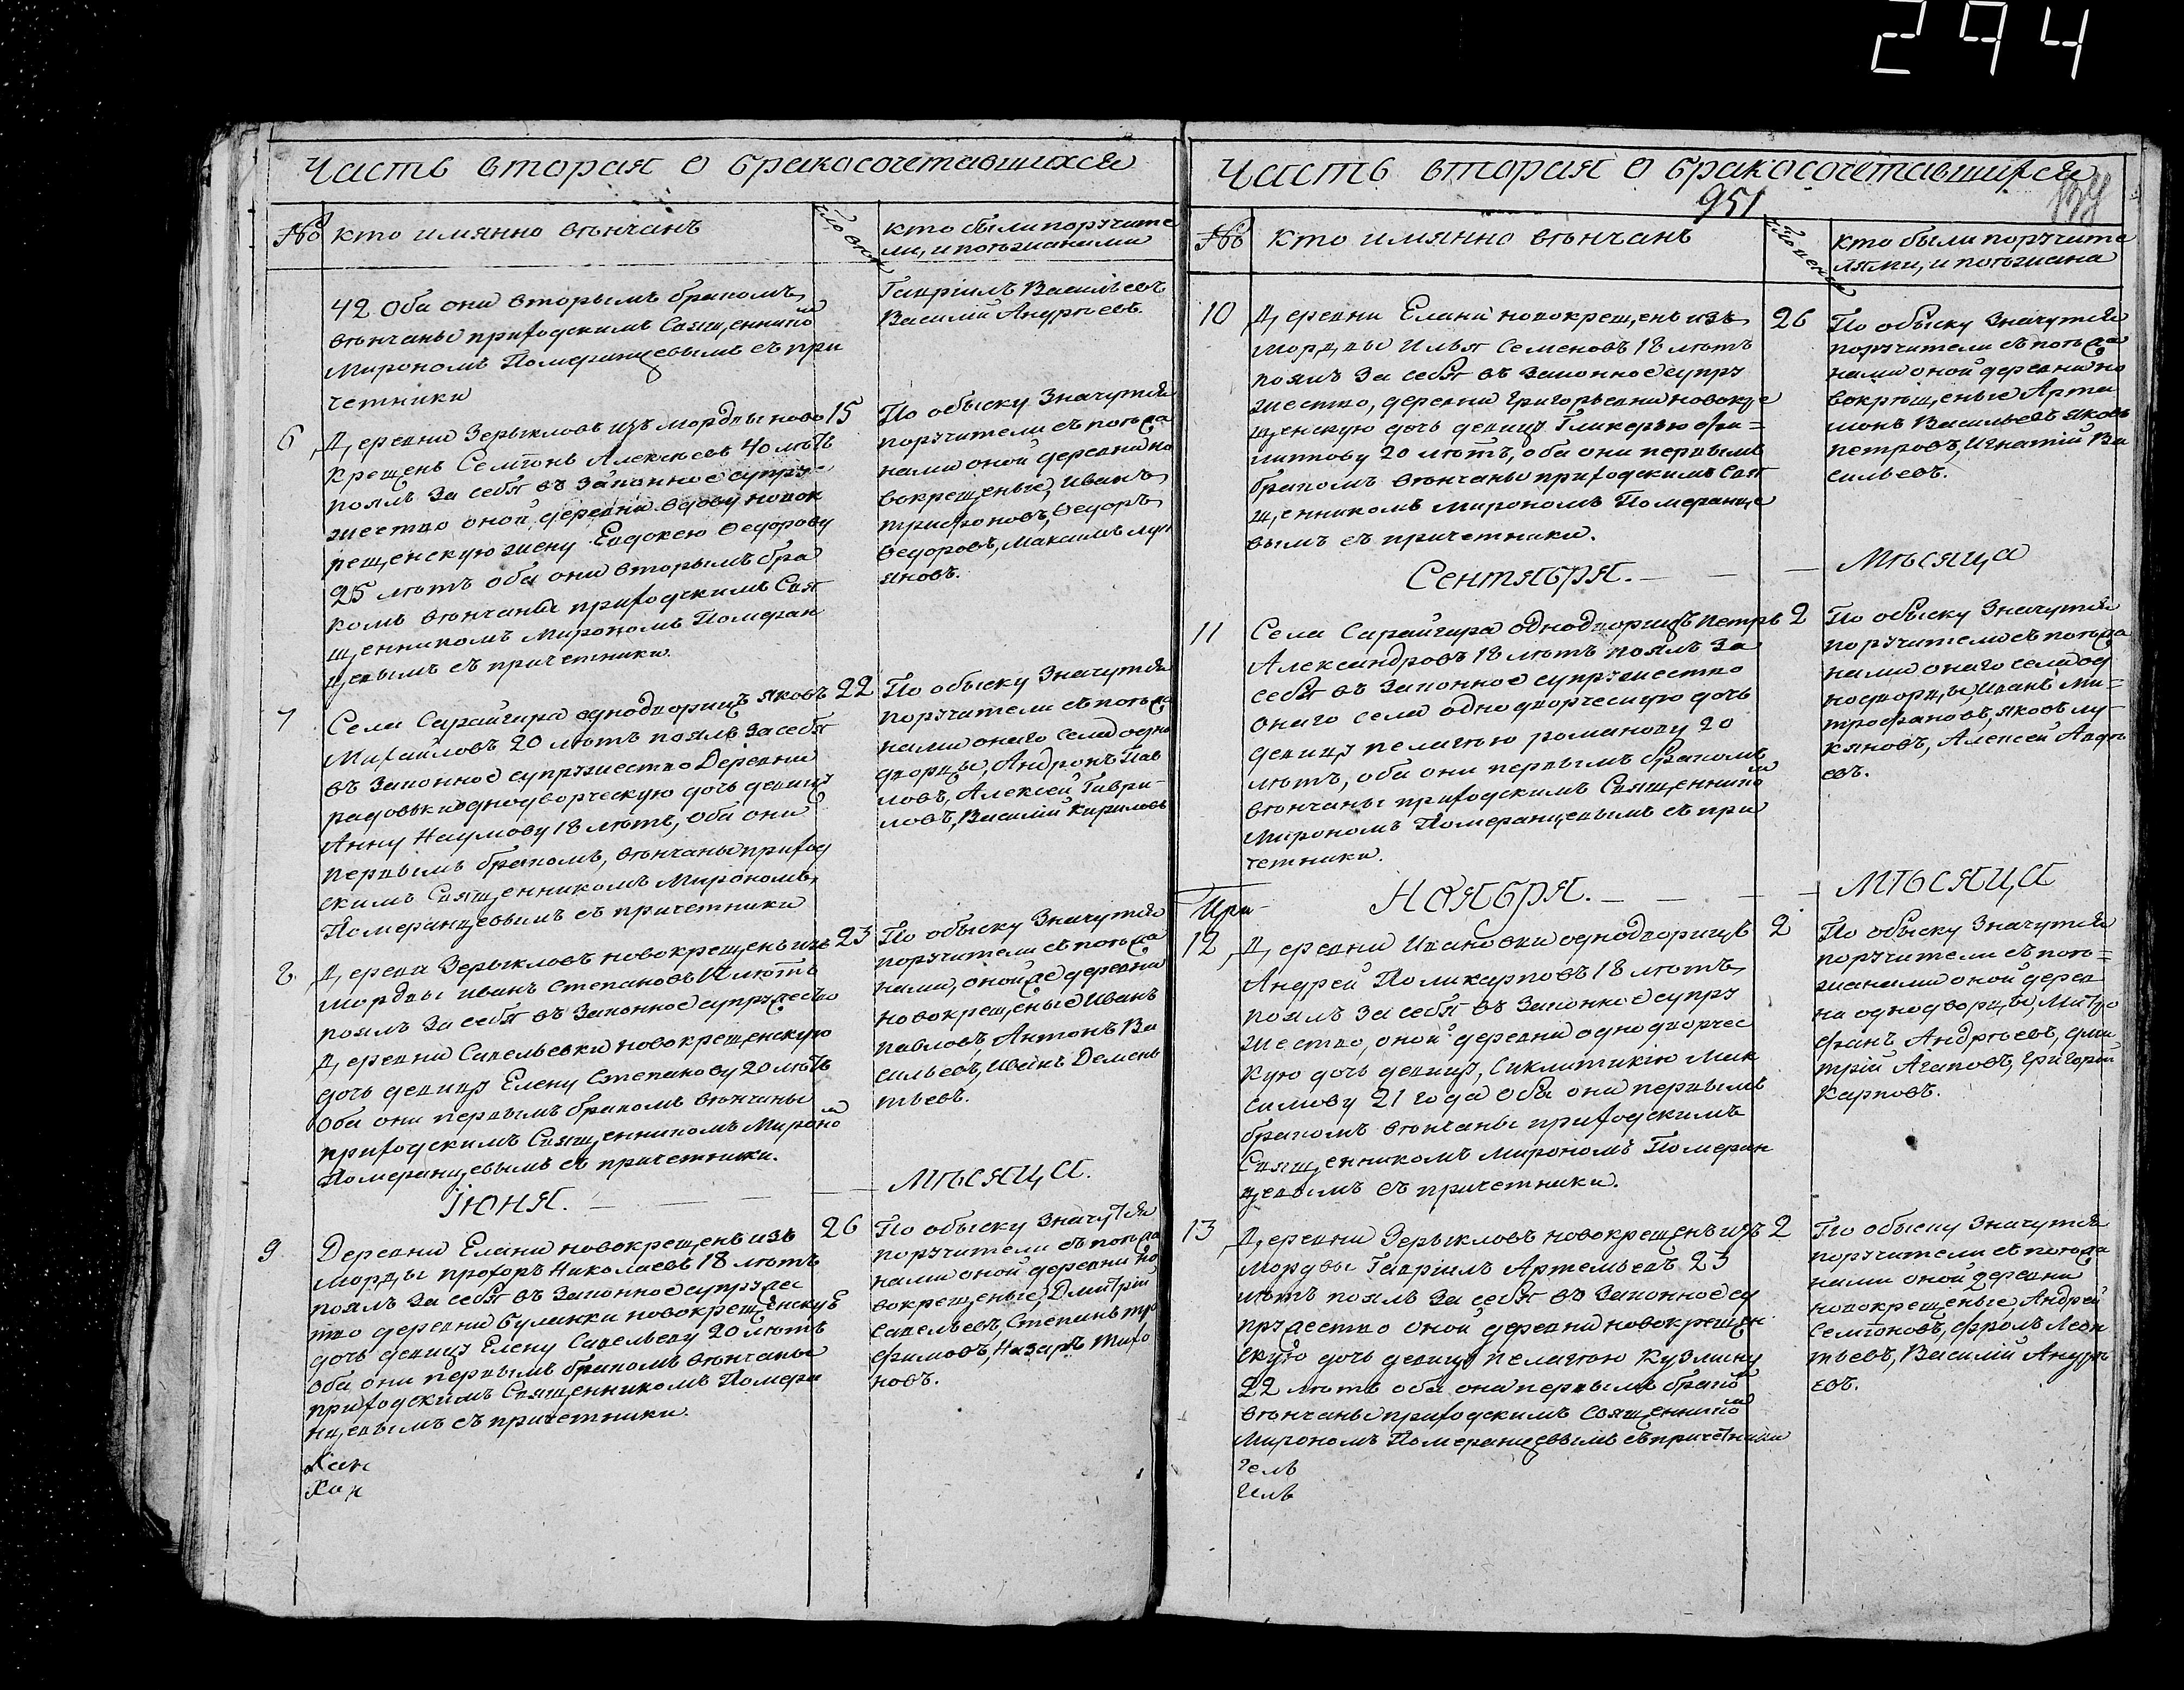 294
Часть вторая о бракосочетавшихся
№
кто имянно вѣнчанъ
кто были поручите
ли, и поѣзжаными
42 Оба они вторымъ бракомъ,
вѣнчаны приходскимъ Священнико
м
Мирономъ Померанцевымъ съ при
четники
Гавріилъ Васильевъ
Василій Андрѣевъ.
6
Деревни Зерыкловъ изъ мордвы ново
крещенъ Семіонъ Алексѣевъ 40 лѣтъ
поялъ за себя въ законное супру
жество оной деревни вдову новок
рещенскую жену Евдокею Ѳедорову
25 лѣтъ оба они вторымъ бра
комъ вѣнчаны приходскимъ Свя
щенникомъ Мирономъ Померан
цевымъ съ причетники.
15
По обыску Значутся
поручители съ поѣзжа
ными оной деревни но
вокрещеные, Иванъ
трифоновъ, Ѳедоръ
Ѳедоровъ, Максимъ Лук
яновъ.
7
Села Сарайгира однодворицъ Яковъ
Михайловъ 20 лѣтъ поялъ за себя
въ Законное супружество Деревни
радовки однодворческую дочь девицу
Анну Наумову 18 лѣтъ, оба они
первымъ бракомъ, вѣнчаны приход
скимъ Священникомъ Мирономъ
Померанцевымъ съ причетники
22
По обыску Значутся
поручители съ поѣзжа
ными онаго села одно
дворцы, Андронъ Пав
ловъ, Алексей Гаври-
ловъ, Василій Кириловъ
8
Деревни Зерыкловъ новокрещенъ изъ
мордвы Иванъ Степановъ лѣтъ
поялъ за себя въ Законное супружество
Деревни Савельевки новокрещенскую
дочь девицу Елену Степанову 20 лѣтъ
Оба они первымъ бракомъ вѣнчаны
приходскимъ Священникомъ Мироно
м
Померанцевымъ съ причетники.
23
По обыску Значутся
поручители съ поѣзжа
ными, оной же деревни
новокрещеные Иванъ
Павловъ, Антонъ Ва
сильевъ, Иванъ Демень
тьевъ.
Іюня. — — — — Мѣсяца.
9
Деревни Елани новокрещенъ изъ
морды прохоръ Николаевъ 18 лѣтъ
поялъ за себя въ Законное супружес
тво деревни Буланки новокрещенскую
дочь девицу Елену Савельеву 20 лѣтъ
Оба они первымъ бракомъ вѣнчаны
приходскимъ Священникомъ Помера
нцевымъ съ причетники.
26
По обыску Значутся
поручители съ поѣзжа
ными оной деревни но
вокрещеные, Дмитрій
Савельевъ, Степанъ тро
фимовъ, Назаръ Миро
новъ.
Часть вторая о бракосочетавшихся
951
№
кто имянно вѣнчанъ
кто были поручите
лями, и поѣзжана
10
Деревни Елани новокрещенъ изъ
мордвы Илья Семеновъ 18 лѣтъ
поялъ за себя въ законное супру
жество, деревни Григорьевки новокре
щенскую дочь девицу Гликерью Фи=
липпову 20 лѣтъ, оба они первымъ
бракомъ вѣнчаны приходскимъ Свя
щенникомъ Мирономъ Померанце
вымъ съ причетники.
26
По обыску Значутся
поручители съ поѣзжа
ными оной деревни но
вокрещеные Арта
монъ Васильевъ Яковъ
петровъ, Игнатій Ва
сильевъ.
Сентября. — — — Мѣсяца
11
Села Сарайгира однодворицъ петръ
Александровъ 18 лѣтъ поялъ за
себя въ законное супружество
онаго села однодворческую дочь
девицу пелагею романову 20
лѣтъ, оба они первымъ бракомъ
вѣнчаны приходскимъ Священнико
м
Мирономъ Померанцевымъ съ при
четники.
2
По обыску Значутся
поручители съ поѣзжа
ными онаго села од
нодворцы, Иванъ Ми=
трофановъ, Яковъ Лу-
кяновъ, Алексей Авдѣ
евъ.
Ноября. — — — Мѣсяца
12
Деревни Ивановки однодворицъ
Андрей Поликарповъ 18 лѣтъ
поялъ за себя въ Законное супру
жество, оной деревни однодворчес
кую дочь девицу, Сиклитикію Мак
симову 21 года Оба они первымъ
бракомъ вѣнчаны приходскимъ
Священникомъ Мирономъ Померан
цевымъ съ причетники.
2
По обыску Значутся
поручители съ поѣ=
зжаными оной дерев
ни однодворцы, Митро
фанъ Андрѣевъ, Дми
трій Агаповъ, Григорій
Карповъ.
13
Деревни Зерыкловъ новокрещенъ изъ
Мордвы Гавріилъ Артемьевъ 23
лѣтъ поялъ за себя въ Законное су
пружество оной деревни новокрещен
скую дочь девицу пелагею Кузмину
22 лѣтъ оба они первымъ брако
м
вѣнчаны приходскимъ Священнико
м
Мирономъ Померанцевымъ съ причетники
2
По обыску Значутся
поручители съ поѣзжа
ными оной деревни
новокрещеные, Андрей
Семіоновъ, Фролъ Леон
тьевъ, Василій Андрѣ
евъ.